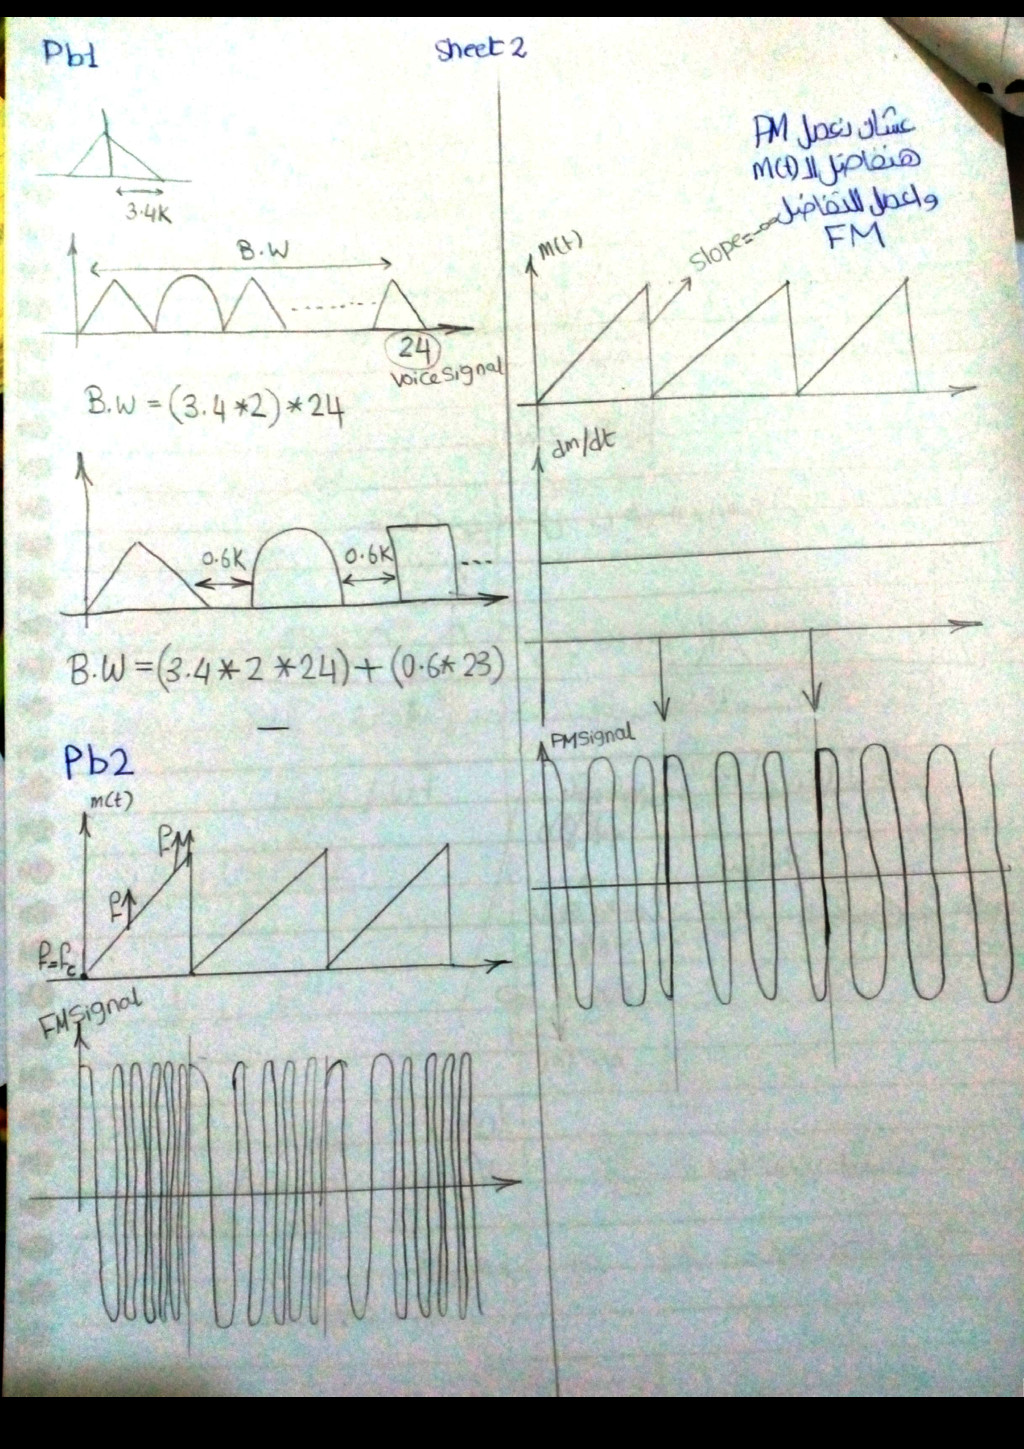 Pb1
Sheet 2
3.4K
B.W
24
voice signal
B.W = (3.4*2)*24
0.6K
0.6K
B.W = (3.4*2*24)+(0.6*23)
Pb2
m(t)
f↑↑
f↑
f=fc
FM Signal
عشان نعمل PM
هنفاضل ال m(t)
واعمل للتفاضل
FM
m(t)
Slope=-∞
dm/dt
PM Signal